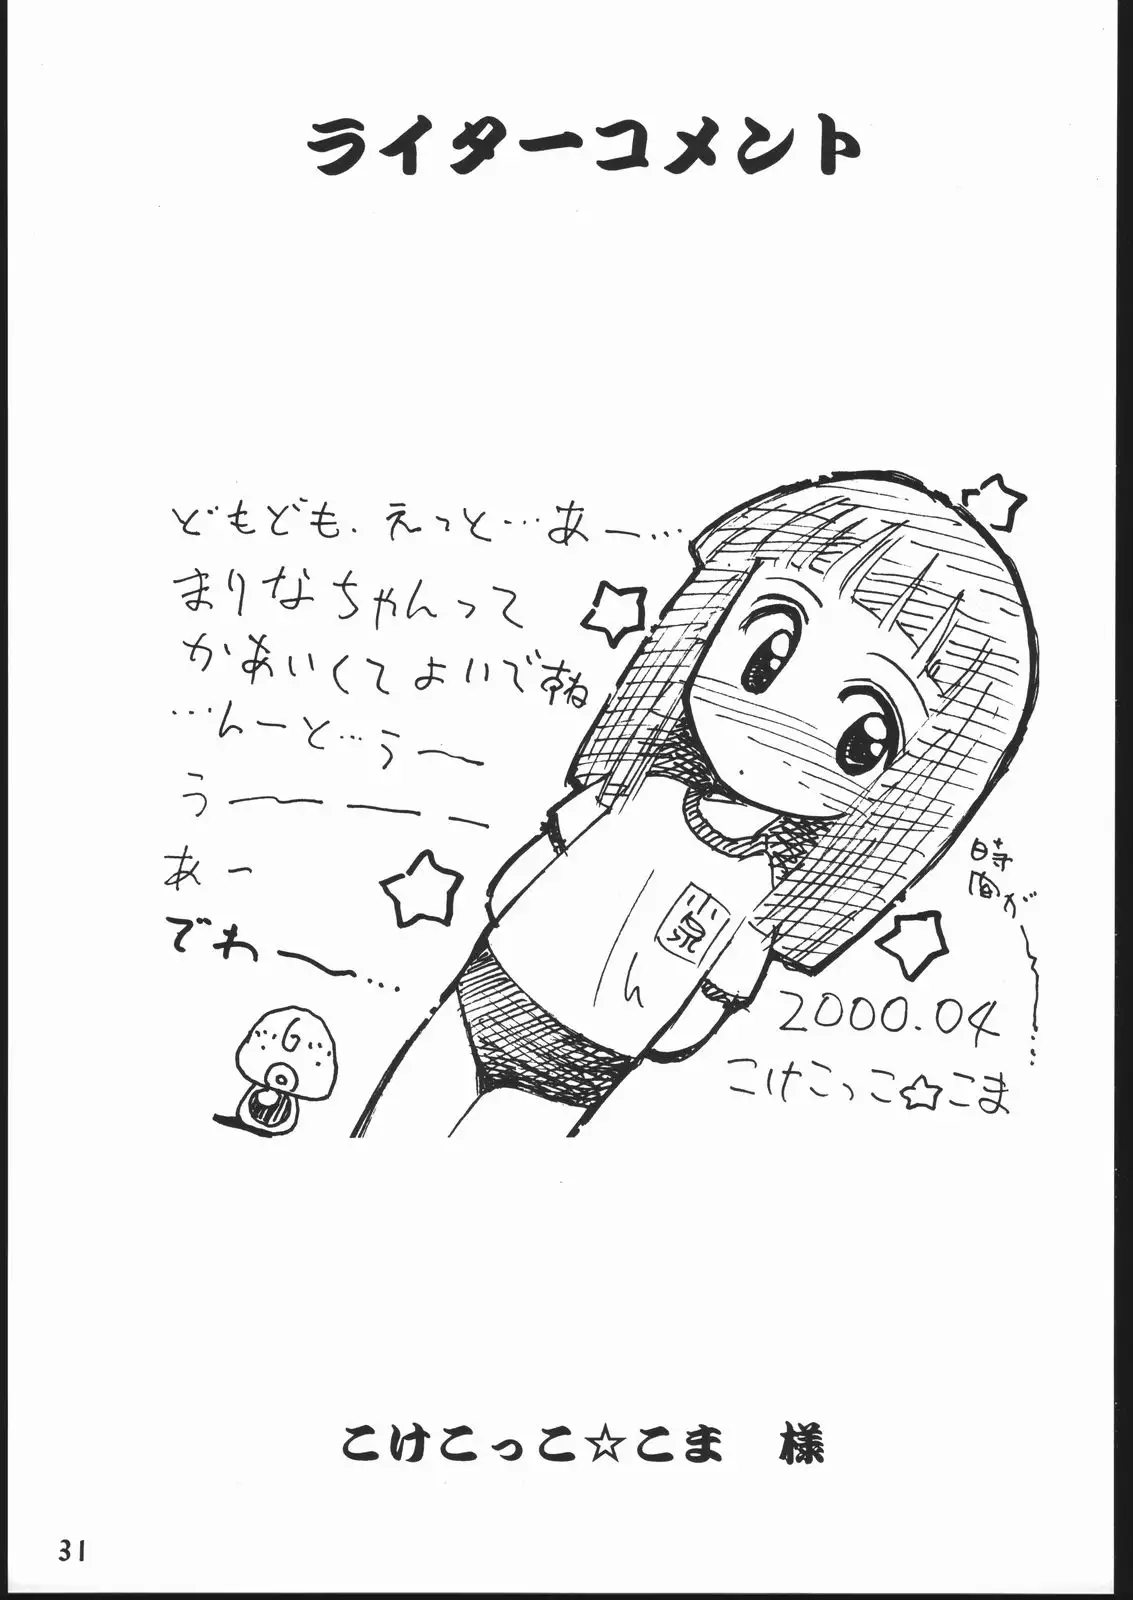 ライターコメント
どもども、えっと…あー…
まりなちゃんって
かあいくてよいですね
…んーと…う〜
う〜ーー
あー
でわ〜…
G
小泉
2000.04
こけこっこ☆こま
時間が〜…
こけこっこ☆こま 様
31